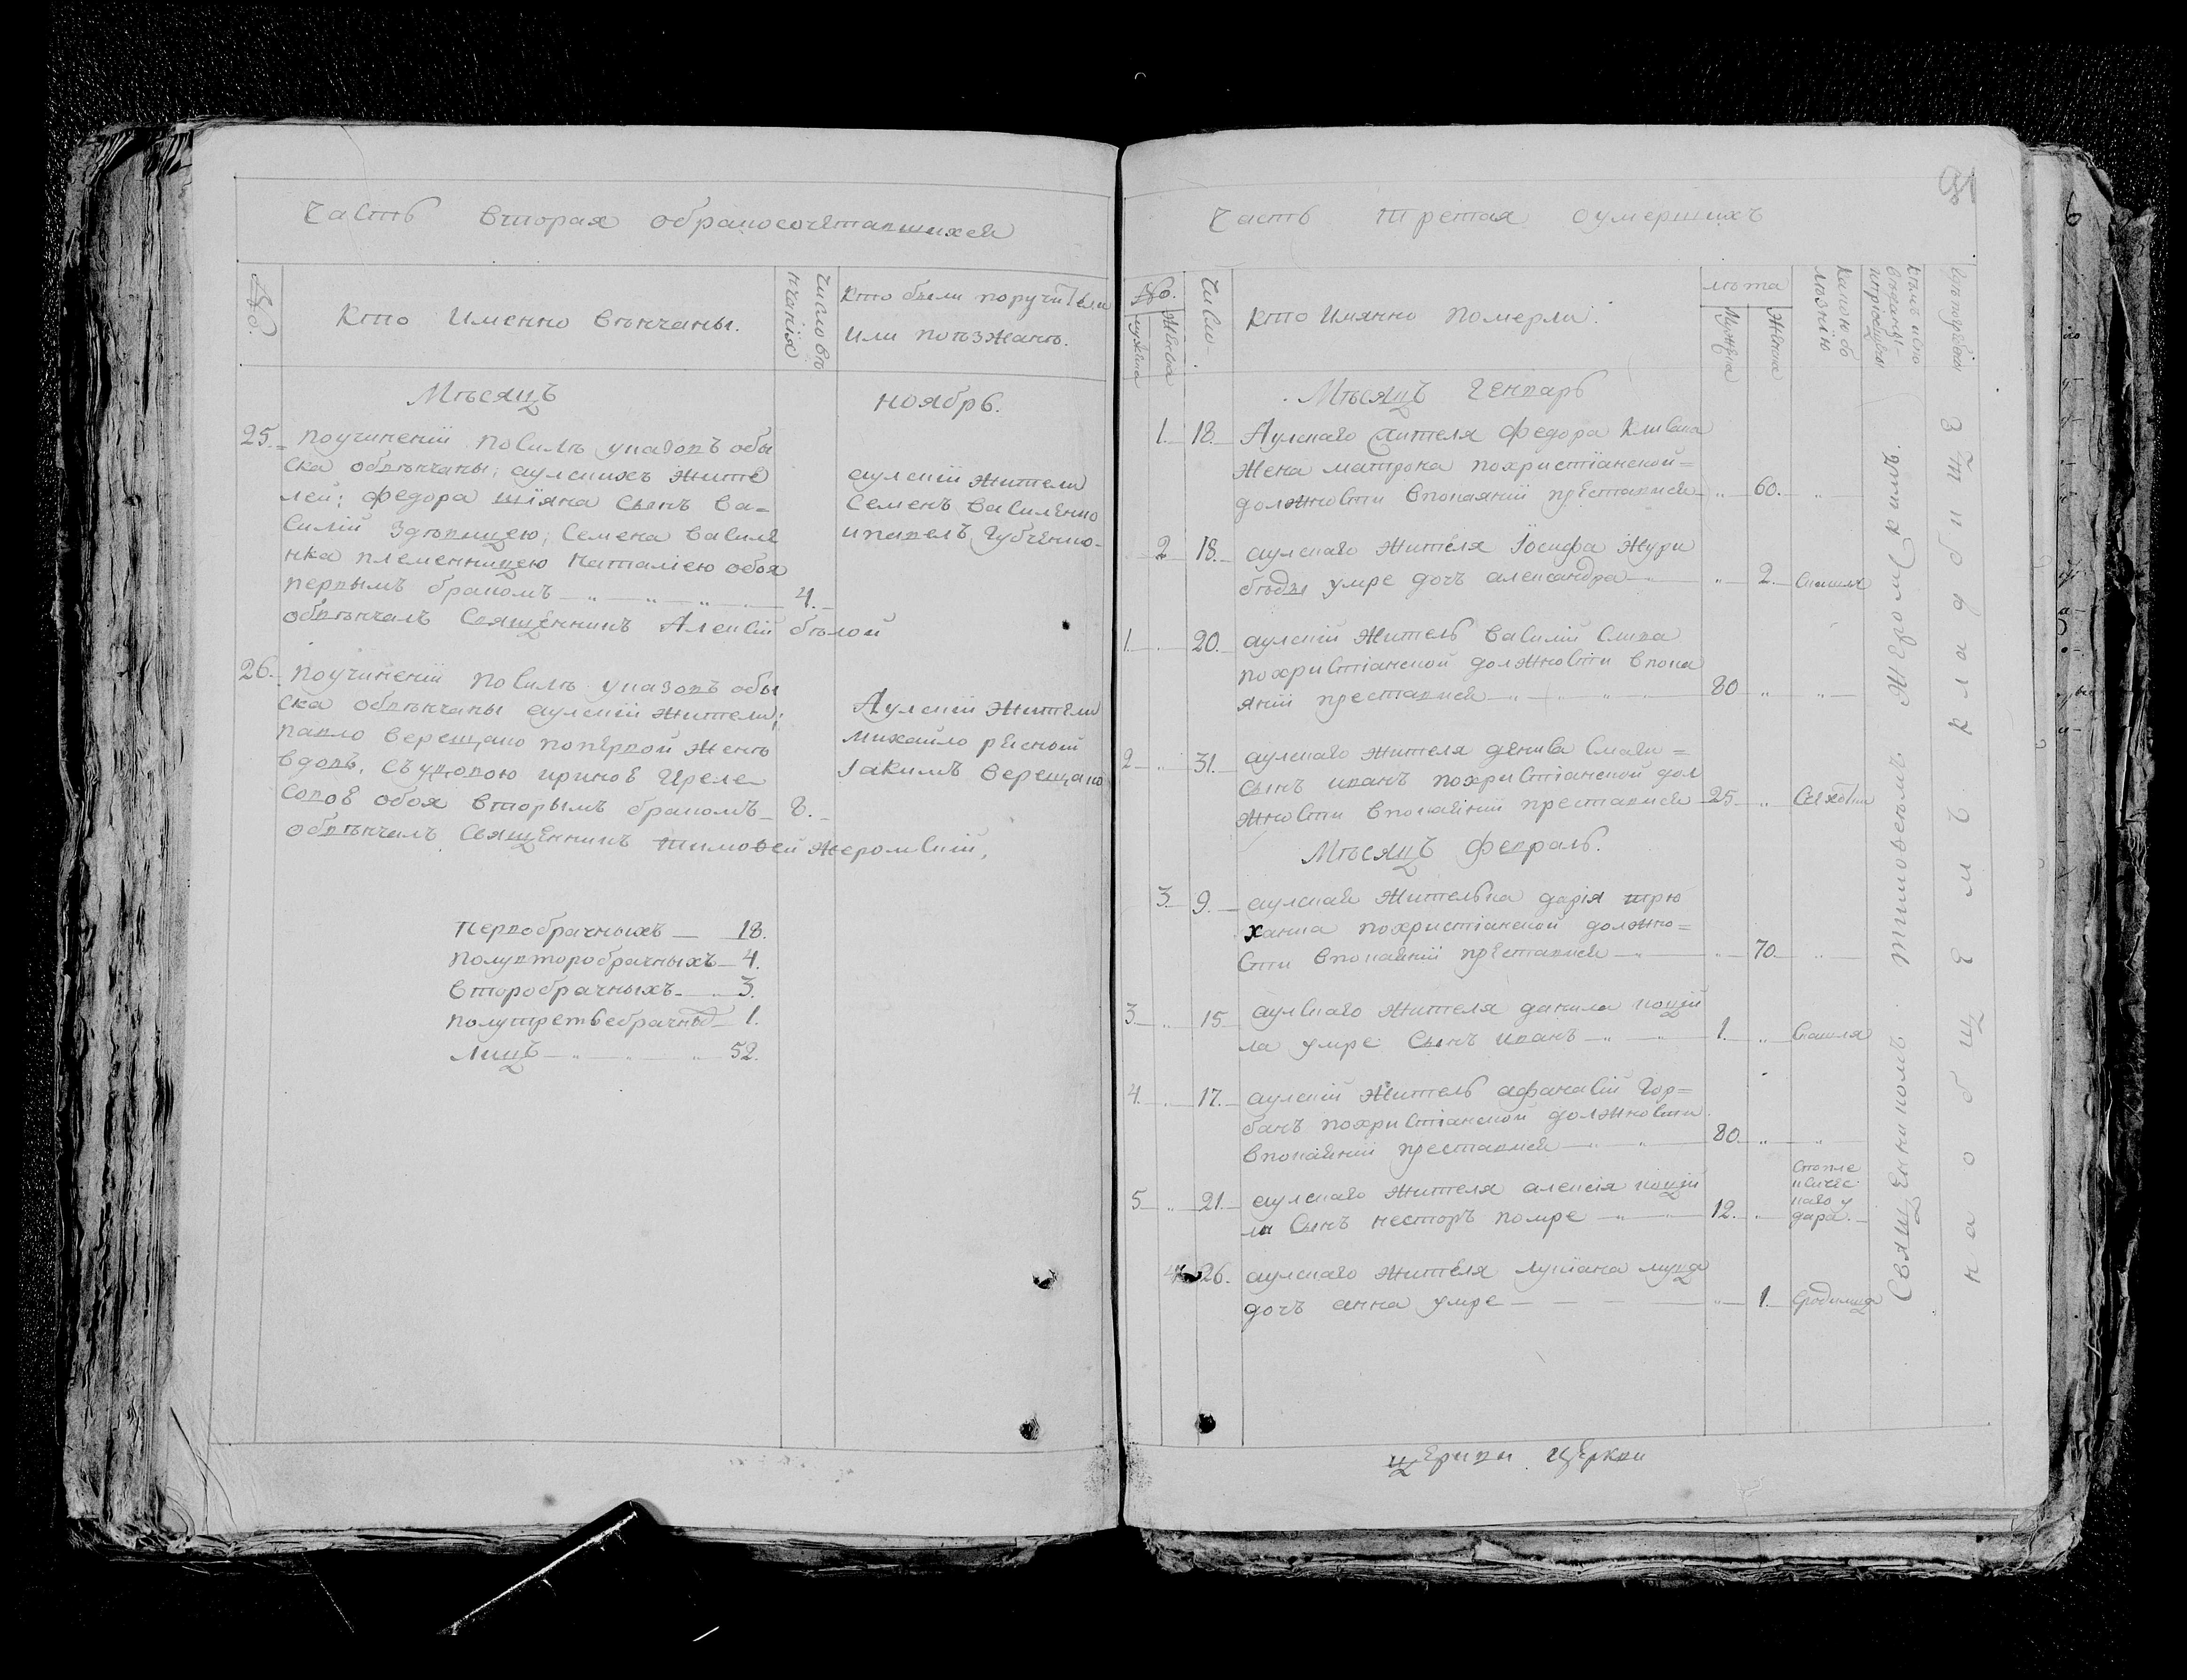 Часть вторая обракосочетавшихся
№.
Кто Именно вѣнчаны.
Число вѣнчанія
Кто были поручители
или поѣзжанѣ.
Мѣсяцъ ноябрь.
25. поучиненіи посилѣ указовъ обы
ска обвѣнчаны; аулскихъ жите
лей: федора шіяна сынъ ва=
силій здѣвицею, семена василе
нка племенницею наталіею обоя
первымъ бракомъ 4.
обвѣнчалъ священникъ Алексій бѣлой
аулскіи жители
семенъ василенко
ипавелъ губченко
26. поучиненіи посилѣ указовъ обы
ска обвѣнчаны аулскіи жители;
павло верещако попервой женѣ
вдовъ, съ удовою ириною
обоя вторымъ бракомъ 8.
обвѣнчалъ священникъ тимофей жеромскій,
Аулскіи жители
михайло рѣсной
Іакимъ верещако
первобрачныхъ 18.
полувторобрачныхъ 4.
второбрачныхъ 3.
полутретьебрачных 1.
лицъ 52.
Часть третая оумершихъ
№.
мужеска
женска
Число
кто имянно померли.
лѣта
мужеска
женска
какою бо
лѣзнію
Мѣсяцъ генварь
1. 18. Аулскаго жителя федора
жена матрона похристіанской=
должности впокаяніи преставися 60.
2 18. аулскаго жителя Іосифа жури
бѣды умре дочъ александра 2. скашля
1. 20. аулскій житель василій слипа
похристіанской должности впока
яніи преставися 80
2 31. аулскаго жителя дениса
сынъ иванъ похристіанской дол
жности впокаяніи преставися 25
Мѣсяцъ февраль.
3. 9. аулская жителька дарія трю
ханка похристіанской должно=
сти впокаяніи преставися 70.
3 15 аулскаго жителя данила коцю
ла умре сынъ иванъ 1. скашля
4. 17. аулскій житель афанасій гор=
банъ похристіанской должности
впокаяніи преставися 80.
5 21. аулскаго жителя алексія коцю
ла сынъ несторъ помре 12.
удара
4 26. аулскаго жителя лукіана
дочъ анна умре 1. сродимца
Священникомъ тимофеемъ жеромскимъ.
на общемъ кладбищѣ
церкви церкви